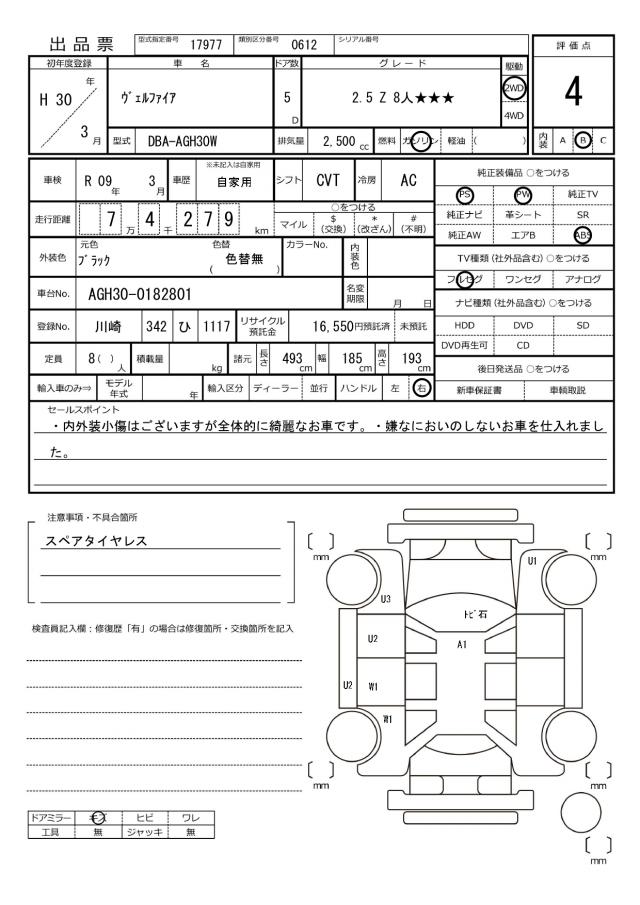 出品票
型式指定番号 17977 類別区分番号 0612 シリアル番号
評価点
4
内装 A B C
初年度登録 車名 ドア数 グレード 駆動
H 30 年 3 月
ヴェルファイア
5 D
2.5 Z 8人★★★
2WD
4WD
型式 DBA-AGH30W 排気量 2,500 cc 燃料 ガソリン 軽油 ( )
車検 R 09 年 3 月 車歴 ※未記入は自家用 自家用 シフト CVT 冷房 AC
走行距離 7 万 4 千 2 7 9 km
○をつける
マイル $ (交換) * (改ざん) # (不明)
外装色 元色 ブラック 色替 ( 色替無 ) カラーNo. 内装色
車台No. AGH30-0182801 名変期限 月 日
登録No. 川崎 342 ひ 1117 リサイクル預託金 16,550円預託済 未預託
定員 8( ) 人 積載量 kg 諸元 長さ 493 cm 幅 185 cm 高さ 193 cm
輸入車のみ⇒ モデル年式 年 輸入区分 ディーラー 並行 ハンドル 左 右
純正装備品 ○をつける
PS PW 純正TV
純正ナビ 革シート SR
純正AW エアB ABS
TV種類 (社外品含む) ○をつける
フルセグ ワンセグ アナログ
ナビ種類 (社外品含む) ○をつける
HDD DVD SD
DVD再生可 CD
後日発送品 ○をつける
新車保証書 車輌取説
セールスポイント
・内外装小傷はございますが全体的に綺麗なお車です。・嫌なにおいのしないお車を仕入れまし
た。
注意事項・不具合箇所
スペアタイヤレス
検査員記入欄：修復歴「有」の場合は修復箇所・交換箇所を記入
ドアミラー キズ ヒビ ワレ
工具 無 ジャッキ 無
mm
mm
U1
U3
トビ石
U2
A1
U2
W1
W1
mm
mm
mm